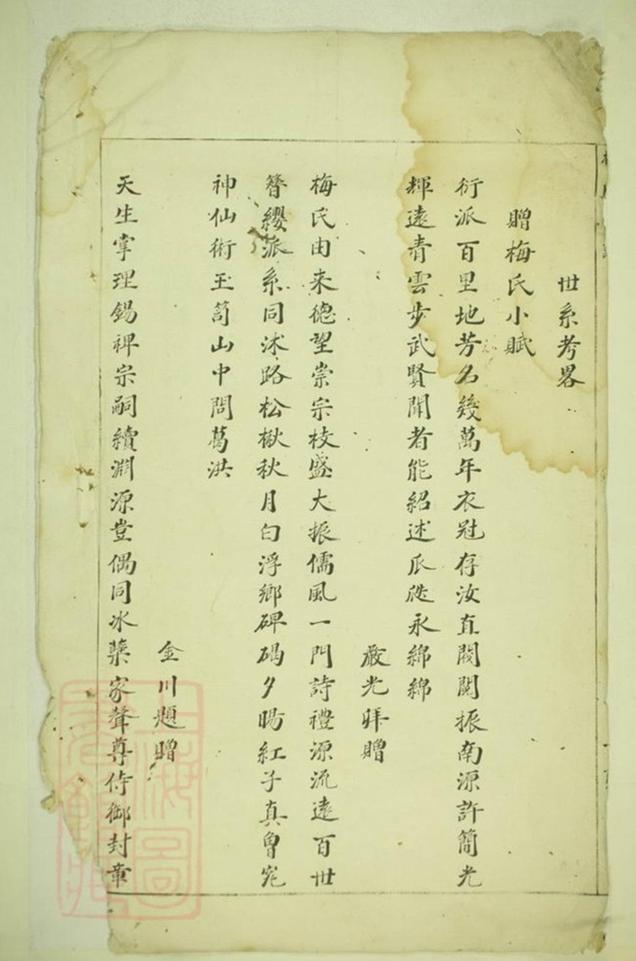 世系考畧
贈梅氏小賦
衍派百里地芳名幾萬年衣冠存汝直閥閱振南源許簡光
輝遠青雲步武賢聞者能紹述瓜瓞永綿綿
嚴光拜贈
梅氏由来德望崇宗枝盛大振儒風一門詩禮源流遠百世
簪纓派系同沭路松楸秋月白浮鄉碑碣夕陽紅子真曾究
神仙術玉笥山中問葛洪
金川題贈
天生掌理錫裨宗嗣續淵源豈偶同冰蘖家聲尊侍御封章